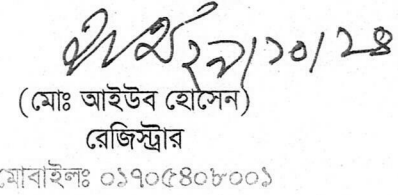 ২৯/১০/২৪
(মোঃ আইউব হোসেন)
রেজিস্ট্রার
মোবাইলঃ ০১৭০৫৪০৮০০১